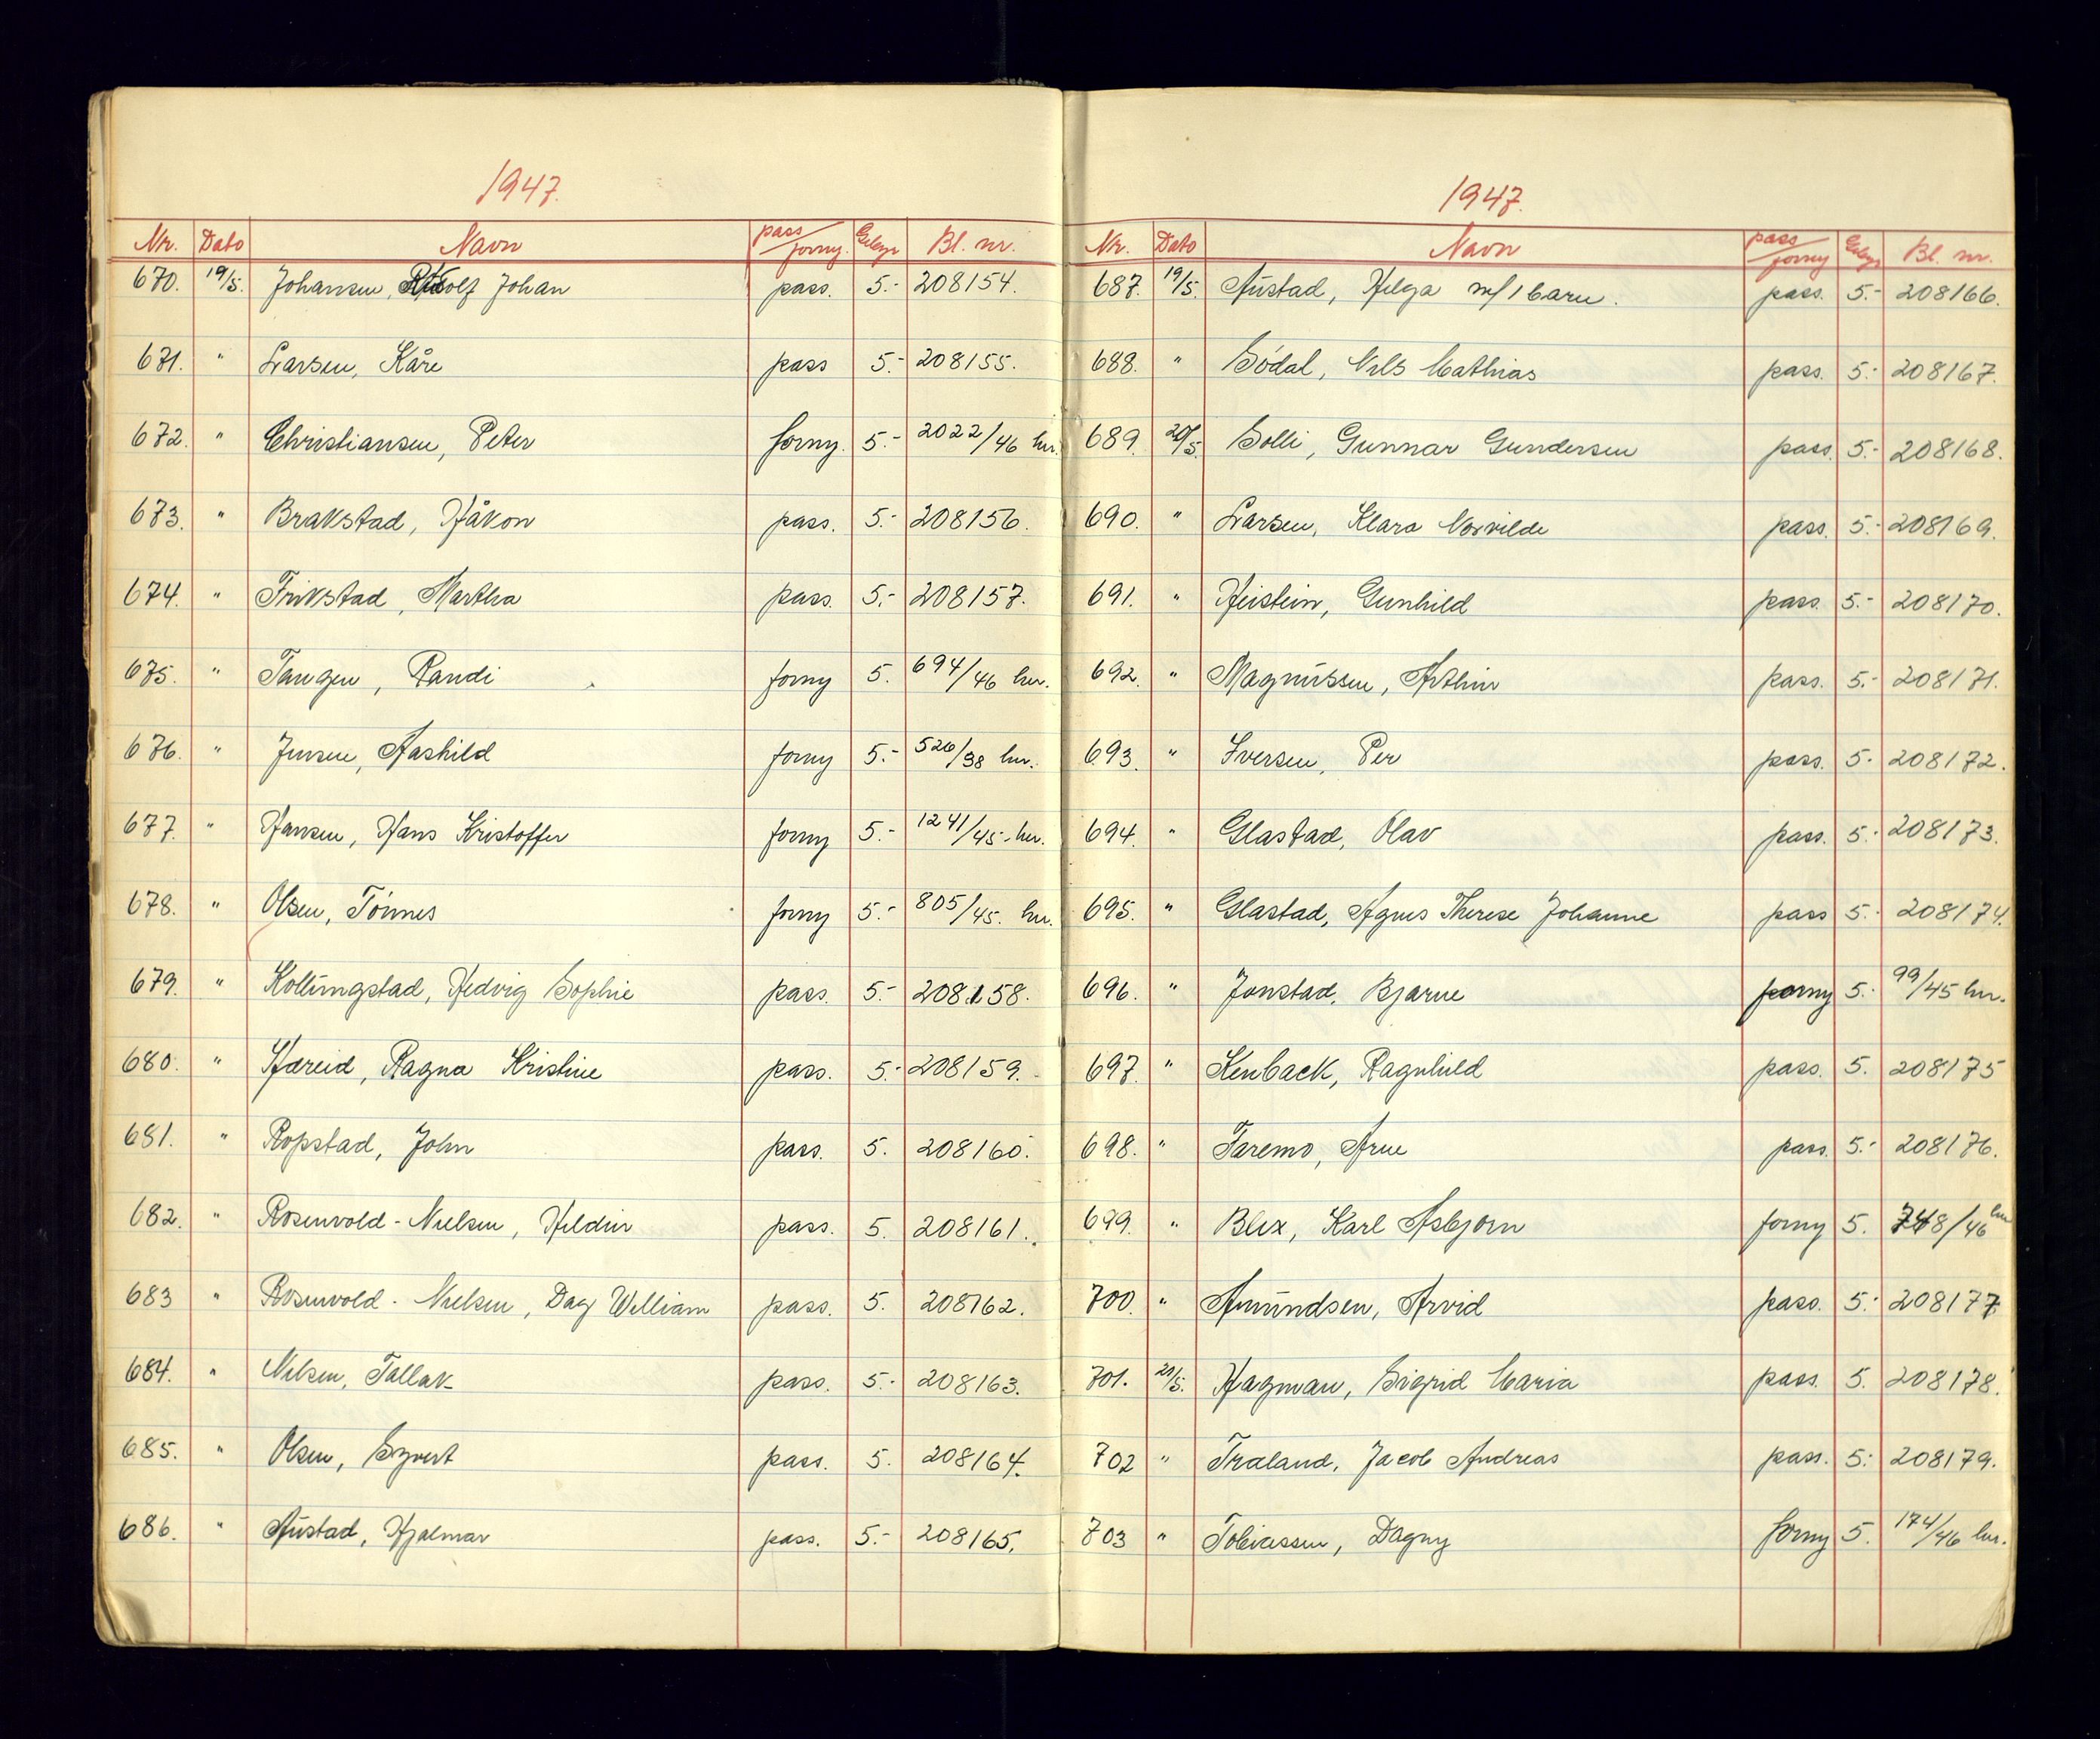 1947.
Nr. Dato Navn pass/forny. Gebyr Bl. nr.
670. 19/5. Johansen, Johan pass. 5.- 208154.
671. " Larsen, Kåre pass 5.- 208155.
672. " Christiansen, Peter forny. 5.- 2022/46 hr.
673. " Brakstad, Håkon pass. 5.- 208156.
674. " Frikstad, Martha pass. 5.- 208157.
675. " Tangen, Randi forny 5. 694/46 hr.
676. " Jensen, Aashild forny 5.- 526/38 hr.
677. " Hansen, Hans Kristoffer forny 5.- 1241/45 hr.
678. " Olsen, Tönnes forny 5.- 805/45. hr.
679. " Kollungstad, Hedvig Sophie pass. 5.- 208158.
680. " Hæreid, Ragna Kristine pass. 5.- 208159.
681. " Ropstad, John pass. 5. 208160.
682. " Rosenvold-Nielsen, pass. 5. 208161.
683 " Rosenvold-Nielsen, Dag William pass. 5. 208162.
684. " Nilsen, Tallak pass. 5.- 208163.
685. " Olsen, Syvert pass. 5. 208164.
686. " Austad, Hjalmar pass. 5.- 208165.
1947.
Nr. Dato Navn pass/forny Gebyr Bl. nr.
687. 19/5. Austad, Helga m/1 barn. pass. 5.- 208166.
688. " Södal, Nils Mathias pass. 5.- 208167.
689. 20/5. Solli, Gunnar Gundersen pass. 5.- 208168.
690. " Larsen, Klara pass. 5.- 208169.
691. " Heistein, Gunhild pass. 5.- 208170.
692. " Magnussen, Arthur pass. 5.- 208171.
693. " Iversen, Per pass. 5.- 208172.
694. " Glastad, Olav pass. 5.- 208173.
695. " Glastad, Agnes Therese Johanne pass 5.- 208174.
696. " Jonstad, Bjarne forny 5.- 99/45 hr.
697. " Kenback, Ragnhild pass. 5. 208175
698. " Faremo, Arne pass. 5.- 208176.
699. " Blix, Karl Asbjørn forny 5. 748/46 hr
700. " Amundsen, Arvid pass. 5.- 208177
701. 20/5. Hagman, Sigrid Maria pass. 5. 208178.
702 " Træland, Jacob Andreas pass. 5.- 208179.
703 " Tobiassen, Dagny forny 5. 174/46 hr.